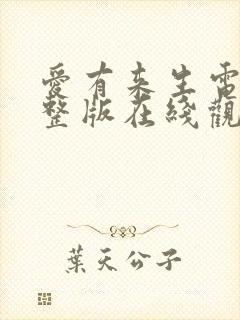 愛有来生電
整版在綫觀
葉天公子